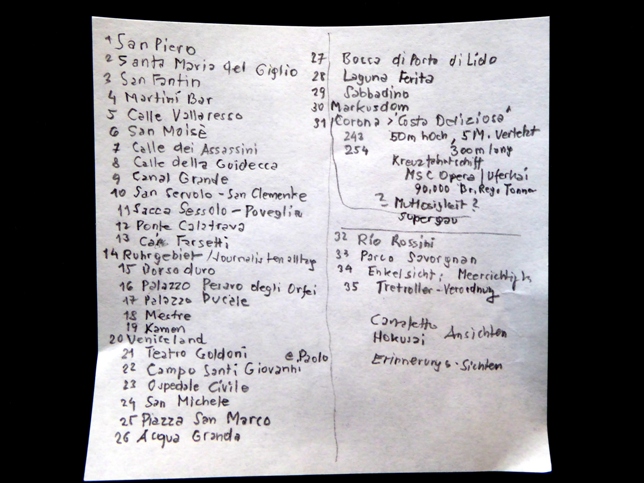 1 San Piero
2 Santa Maria del Giglio
3 San Fantin
4 Martini Bar
5 Calle Vallaresso
6 San Moisè
7 Calle dei Assassini
8 Calle della Guidecca
9 Canal Grande
10 San Servolo - San Clemente
11 Sacca Sessolo - Poveglia
12 Ponte Calatrava
13 Ca' Farsetti
14 Ruhrgebiet / Journalistenalltag
15 Dorsoduro
16 Palazzo Pesaro degli Orfei
17 Palazzo Ducale
18 Mestre
19 Kamen
20 Veniceland
21 Teatro Goldoni e.Paolo
22 Campo Santi Giovanni
23 Ospedale Civile
24 San Michele
25 Piazza San Marco
26 Acqua Granda
27 Bocca di Porto di Lido
28 Laguna Ferita
29 Sabbadino
30 Markusdom
31 Corona > "Costa Deliziosa"
242 50m hoch, 5 M. Verletzt
254 300m lang
Kreuzfahrtschiff
MSC Opera / Uferkai
90,000 Br. Reg. Tonne
? Mutlosigkeit ?
supergau
32 Rio Rossini
33 Parco Savorgnan
34 Enkelsicht; Meerrichtig
35 Tretroller-Verordnung
Canaletto
Hokusai Ansichten
Erinnerungs-Sichten